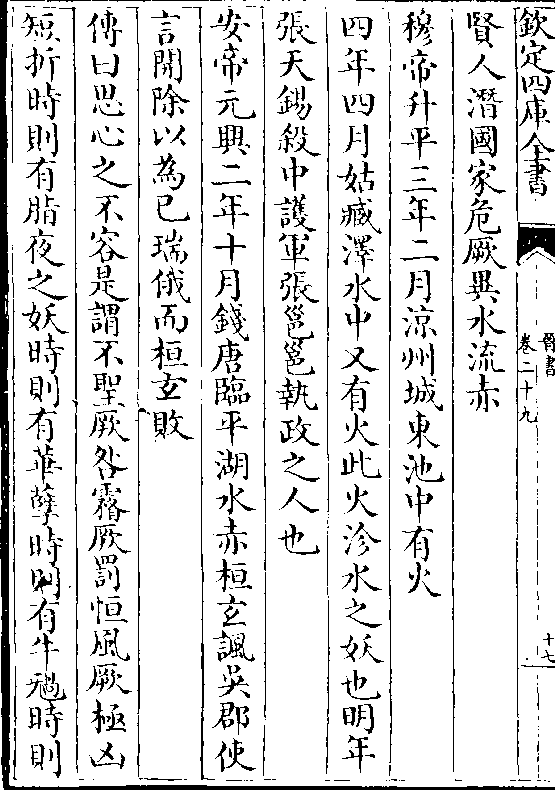 欽定四庫全書
晉書
卷二十九
十七
賢人潛國家危厥異水流赤
穆帝升平三年二月涼州城東池中有火
四年四月姑臧澤水中又有火此火沴水之妖也明年
張天錫殺中護軍張邕邕執政之人也
安帝元興二年十月錢唐臨平湖水赤桓玄諷吳郡使
言開除以為已瑞俄而桓玄敗
傳曰思心之不容是謂不聖厥咎霿厥罰恒風厥極凶
短折時則有脂夜之妖時則有華孽時則有牛禍時則